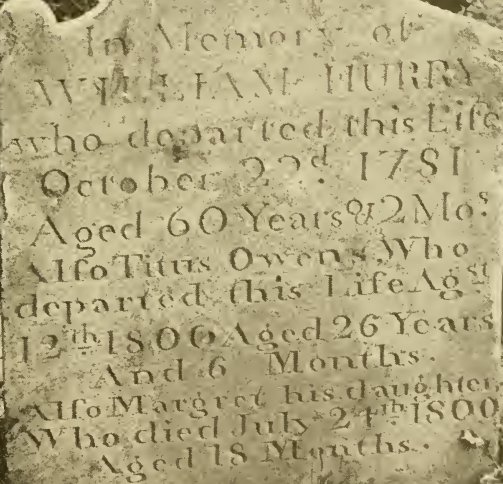 In Memory of
WILLIAM HURRY
who departed this Life
October 22d. 1781
Aged 60 Years & 2 Mos.
Also Titus Owens, Who
departed this Life Agst
12th. 1800 Aged 26 Years
And 6 Months.
Also Margret his daughter
Who died July 24th. 1800
Aged 18 Months.